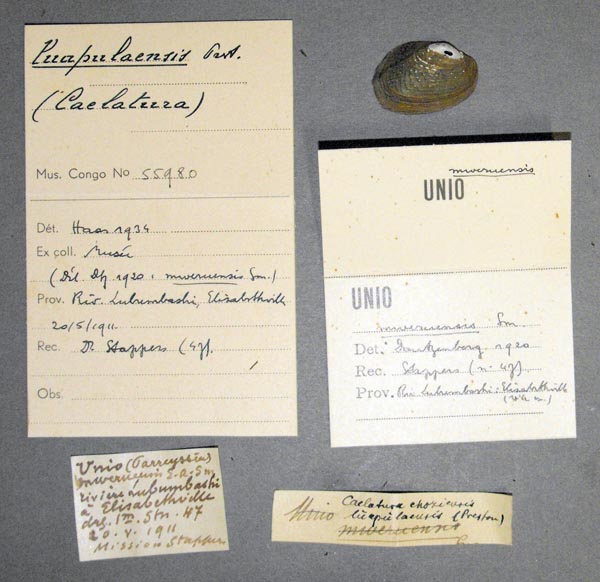 Luapulaensis Prest.
(Caelatura)
Mus. Congo No 55980
Dét. Haas 1934
Ex coll. Musée
(Dét. Dtz 1920 : mweruensis Sm.)
Prov. Riv. Lubumbashi, Elisabethville
20/5/1911
Rec. Dr Stappers (47).
Obs.
mweruensis
UNIO
UNIO
mweruensis Sm.
Det. Dautzenberg 1920
Rec. Stappers (n° 47)
Prov. Riv. Lubumbashi : Elisabethville
Unio (Parreyssia)
mweruensis E.A. Sm
rivière Lubumbashi
à Elisabethville
Stn. 47
20. V. 1911
Mission Stappers
Caelatura
Unio luapulaensis (Preston)
mweruensis